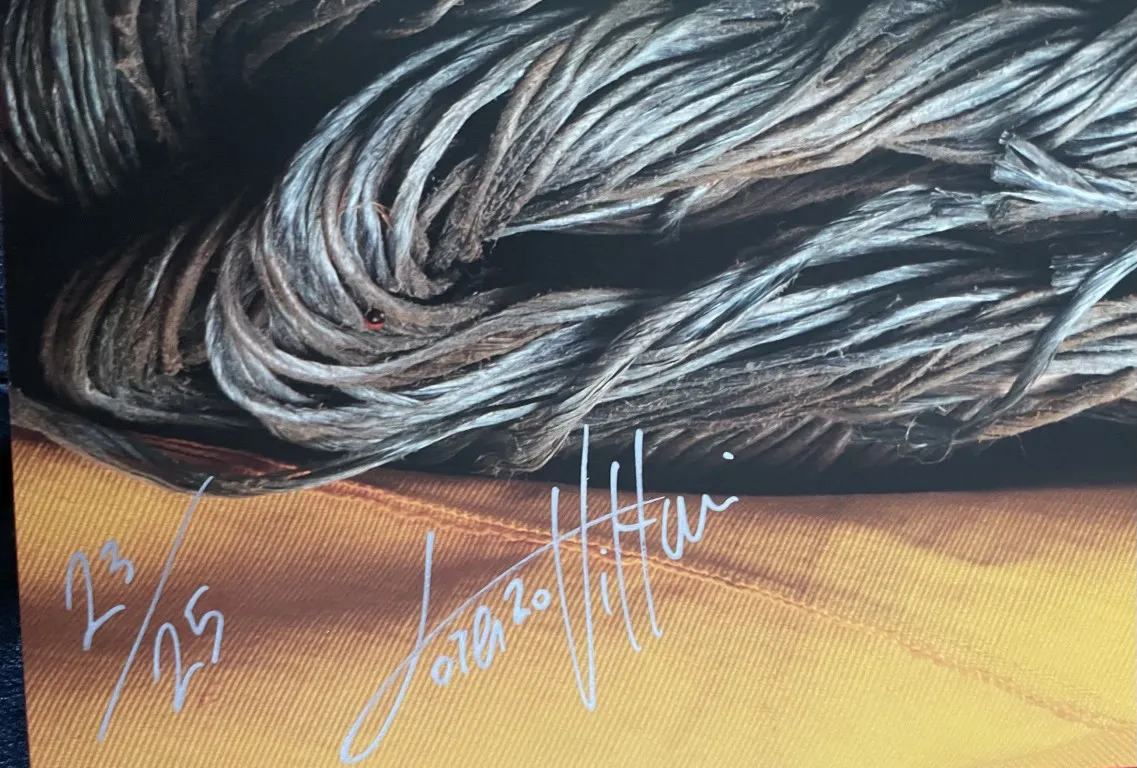 23/25
Lorenzo Vittori